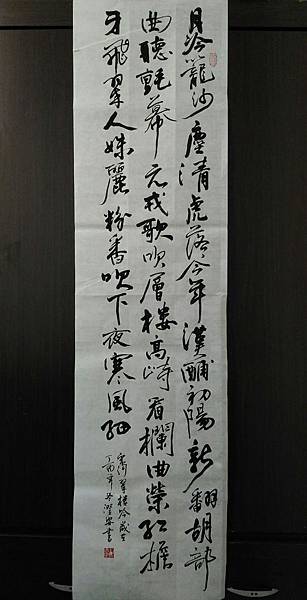 月冷籠沙塵清虎落今年漢酺初陽新翻胡部
曲聽氈幕元戎歌吹層樓高峙看欄曲縈紅檐
牙飛翠人姝麗粉香吹下夜寒風細
翠樓吟
丁酉年書